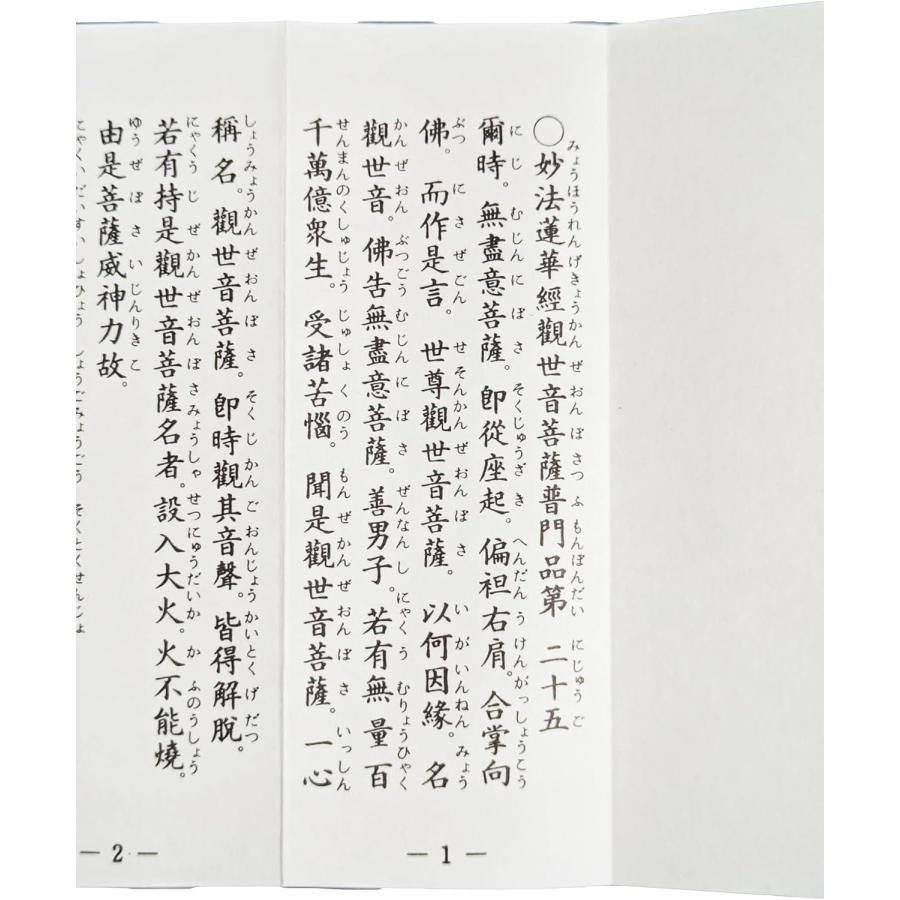 〇妙法蓮華經觀世音菩薩普門品第 二十五
みょうほうれんげきょうかん ぜ おん ぼ さつ ふ もんぼんだい にじゅう ご
爾時。無盡意菩薩。即從座起。偏袒右肩。合掌向
に じ むじん に ぼ さ そくじゅうざ き へんだん う けんがっしょうこう
佛。而作是言。世尊觀世音菩薩。以何因緣。名
ぶつ に さ ぜごん せ そんかん ぜ おん ぼ さ い が いんねん みょう
觀世音。佛告無盡意菩薩。善男子。若有無量百
かん ぜ おん ぶつごう むじん に ぼ さ ぜんなん し にゃく う むりょうひゃく
千萬億衆生。受諸苦惱。聞是觀世音菩薩。一心
せんまんのくしゅじょう じゅしょ く のう もん ぜ かん ぜ おん ぼ さ いっしん
- 1 -
稱名。觀世音菩薩。即時觀其音聲。皆得解脫。
しょうみょうかん ぜ おん ぼ さ そく じ かん ご おんじょう かいとく げ だつ
若有持是觀世音菩薩名者。設入大火。火不能燒。
にゃくう じ ぜ かん ぜ おん ぼ さ みょうしゃ せつにゅうだいか か ふのうしょう
由是菩薩威神力故。
ゆう ぜ ぼ さ い じんりき こ
- 2 -